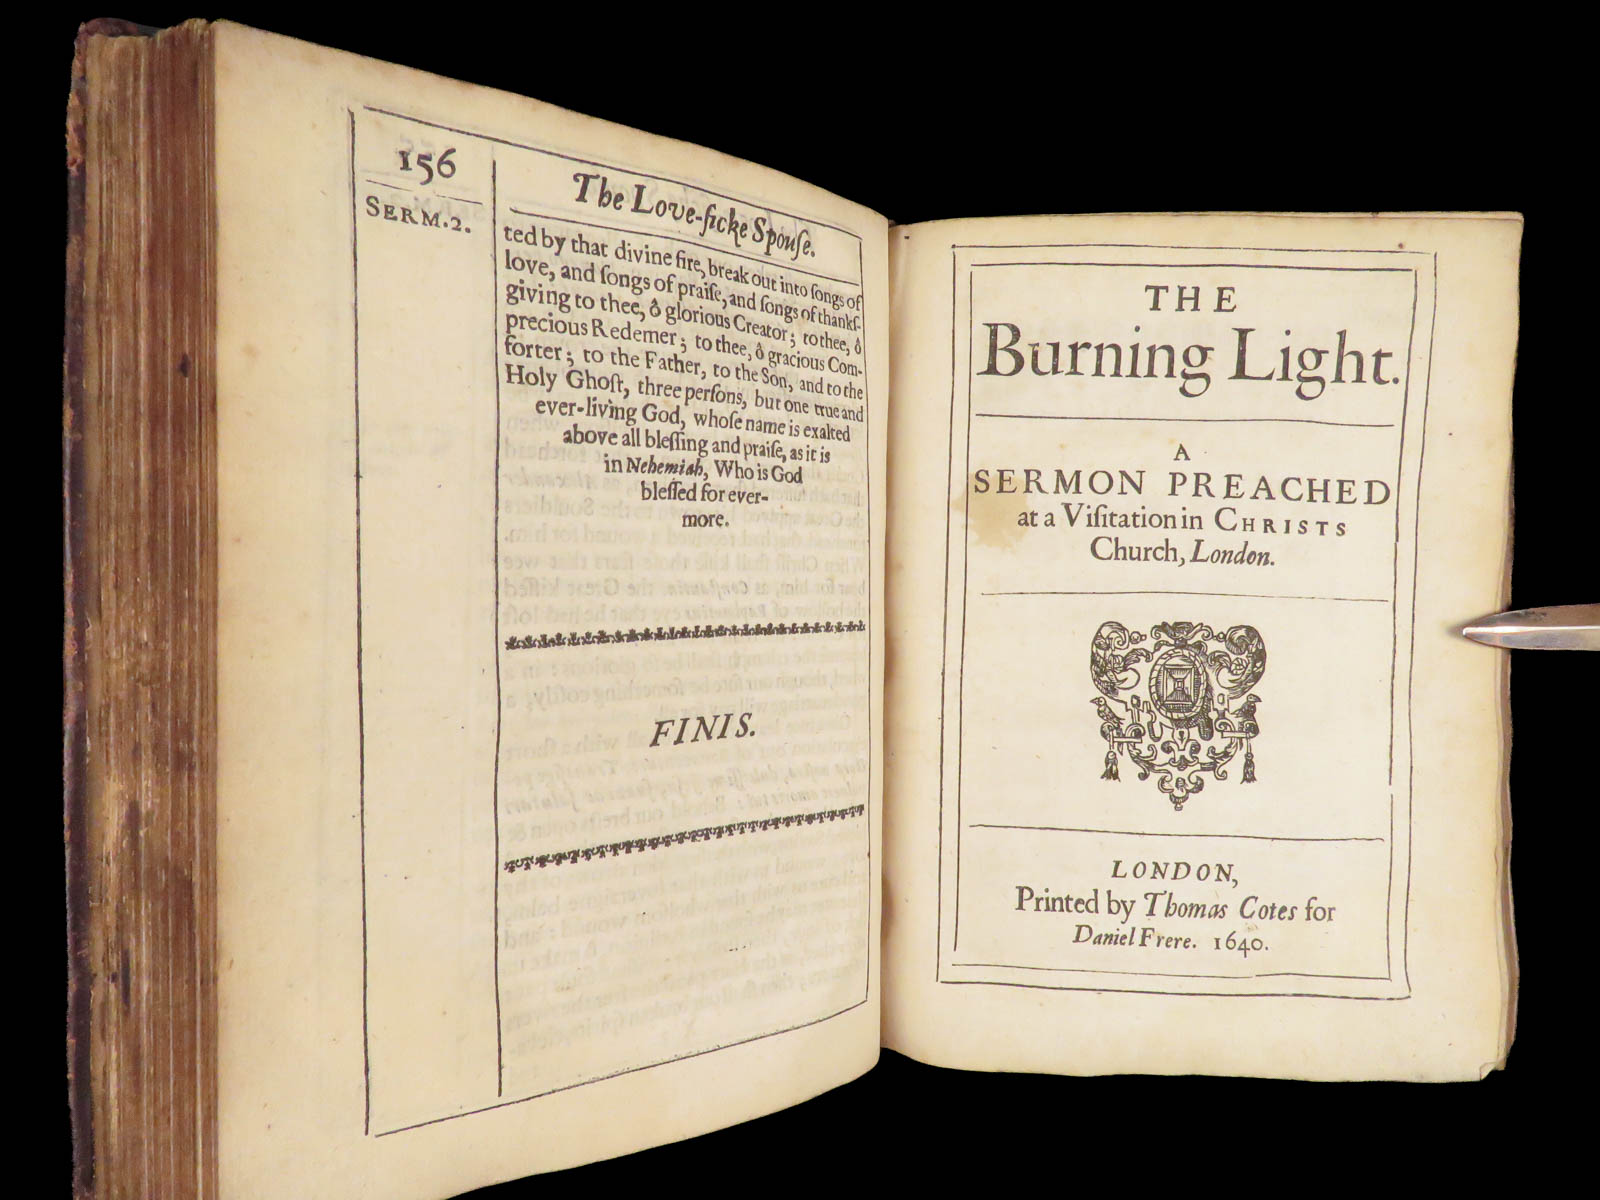 156
SERM.2.
The Love-ſicke Spouſe.
ted by that divine fire, break out into ſongs of
love, and ſongs of praiſe, and ſongs of thankſ-
giving to thee, ô glorious Creator; to thee, ô
precious Redemer; to thee, ô gracious Com-
forter; to the Father, to the Son, and to the
Holy Ghoſt, three perſons, but one true and
ever-living God, whoſe name is exalted
above all bleſſing and praiſe, as it is
in Nehemiah, Who is God
bleſſed for ever-
more.
FINIS.
THE
Burning Light.
A
SERMON PREACHED
at a Viſitation in CHRISTS
Church, London.
LONDON,
Printed by Thomas Cotes for
Daniel Frere. 1640.